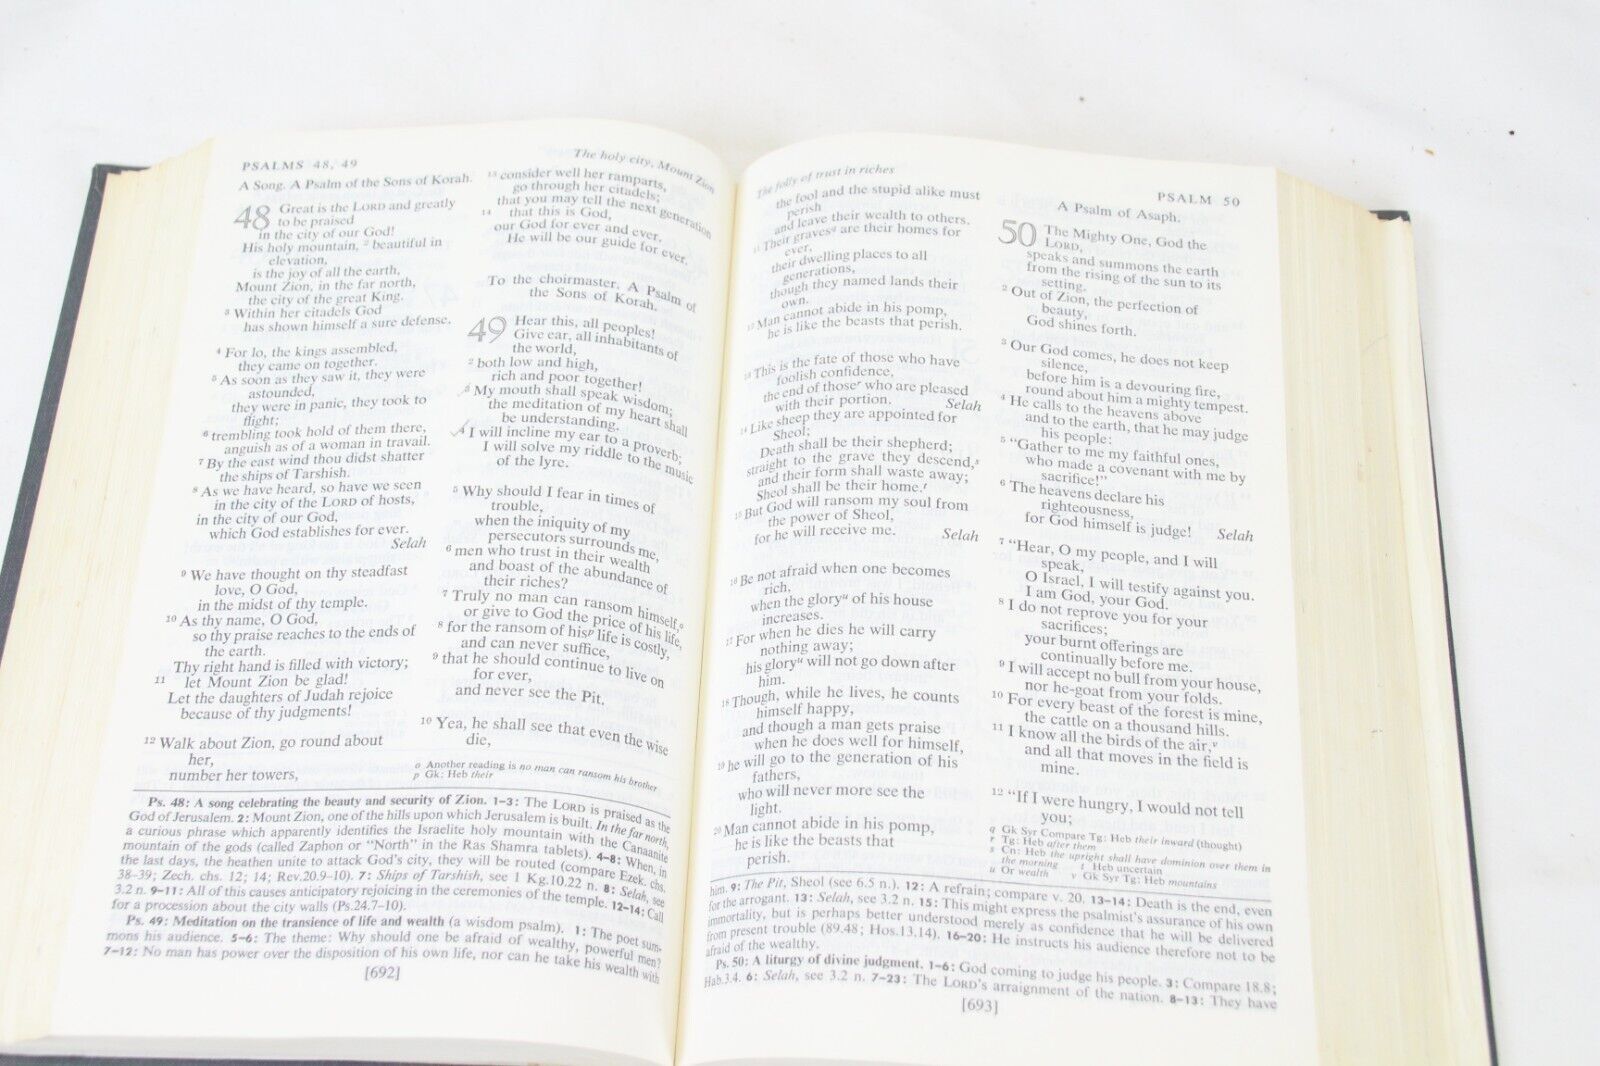 PSALMS 48, 49
The holy city, Mount Zion
A Song. A Psalm of the Sons of Korah.
48 Great is the LORD and greatly
to be praised
in the city of our God!
His holy mountain, 2 beautiful in
elevation,
is the joy of all the earth,
Mount Zion, in the far north,
the city of the great King.
3 Within her citadels God
has shown himself a sure defense.
4 For lo, the kings assembled,
they came on together.
5 As soon as they saw it, they were
astounded,
they were in panic, they took to
flight;
6 trembling took hold of them there,
anguish as of a woman in travail.
7 By the east wind thou didst shatter
the ships of Tarshish.
8 As we have heard, so have we seen
in the city of the LORD of hosts,
in the city of our God,
which God establishes for ever.
Selah
9 We have thought on thy steadfast
love, O God,
in the midst of thy temple.
10 As thy name, O God,
so thy praise reaches to the ends of
the earth.
Thy right hand is filled with victory;
11 let Mount Zion be glad!
Let the daughters of Judah rejoice
because of thy judgments!
12 Walk about Zion, go round about
her,
number her towers,
13 consider well her ramparts,
go through her citadels;
that you may tell the next generation
14 that this is God,
our God for ever and ever.
He will be our guide for ever.
To the choirmaster. A Psalm of
the Sons of Korah.
49 Hear this, all peoples!
Give ear, all inhabitants of
the world,
2 both low and high,
rich and poor together!
3 My mouth shall speak wisdom;
the meditation of my heart shall
be understanding.
4 I will incline my ear to a proverb;
I will solve my riddle to the music
of the lyre.
5 Why should I fear in times of
trouble,
when the iniquity of my
persecutors surrounds me,
6 men who trust in their wealth
and boast of the abundance of
their riches?
7 Truly no man can ransom himself,o
or give to God the price of his life,
8 for the ransom of hisp life is costly,
and can never suffice,
9 that he should continue to live on
for ever,
and never see the Pit.
10 Yea, he shall see that even the wise
die,
o Another reading is no man can ransom his brother
p Gk: Heb their
Ps. 48: A song celebrating the beauty and security of Zion. 1–3: The LORD is praised as the
God of Jerusalem. 2: Mount Zion, one of the hills upon which Jerusalem is built. In the far north,
a curious phrase which apparently identifies the Israelite holy mountain with the Canaanite
mountain of the gods (called Zaphon or "North" in the Ras Shamra tablets). 4–8: When, in
the last days, the heathen unite to attack God's city, they will be routed (compare Ezek. chs.
38–39; Zech. chs. 12; 14; Rev.20.9–10). 7: Ships of Tarshish, see 1 Kg.10.22 n. 8: Selah, see
3.2 n. 9–11: All of this causes anticipatory rejoicing in the ceremonies of the temple. 12–14: Call
for a procession about the city walls (Ps.24.7–10).
Ps. 49: Meditation on the transience of life and wealth (a wisdom psalm). 1: The poet sum-
mons his audience. 5–6: The theme: Why should one be afraid of wealthy, powerful men?
7–12: No man has power over the disposition of his own life, nor can he take his wealth with
[692]
The folly of trust in riches
PSALM 50
the fool and the stupid alike must
perish
and leave their wealth to others.
11 Their gravesq are their homes for
ever,
their dwelling places to all
generations,
though they named lands their
own.
12 Man cannot abide in his pomp,
he is like the beasts that perish.
13 This is the fate of those who have
foolish confidence,
the end of thoser who are pleased
with their portion. Selah
14 Like sheep they are appointed for
Sheol;
Death shall be their shepherd;
straight to the grave they descend,s
and their form shall waste away;
Sheol shall be their home.t
15 But God will ransom my soul from
the power of Sheol,
for he will receive me. Selah
16 Be not afraid when one becomes
rich,
when the gloryu of his house
increases.
17 For when he dies he will carry
nothing away;
his gloryu will not go down after
him.
18 Though, while he lives, he counts
himself happy,
and though a man gets praise
when he does well for himself,
19 he will go to the generation of his
fathers,
who will never more see the
light.
20 Man cannot abide in his pomp,
he is like the beasts that
perish.
A Psalm of Asaph.
50 The Mighty One, God the
LORD,
speaks and summons the earth
from the rising of the sun to its
setting.
2 Out of Zion, the perfection of
beauty,
God shines forth.
3 Our God comes, he does not keep
silence,
before him is a devouring fire,
round about him a mighty tempest.
4 He calls to the heavens above
and to the earth, that he may judge
his people:
5 "Gather to me my faithful ones,
who made a covenant with me by
sacrifice!"
6 The heavens declare his
righteousness,
for God himself is judge! Selah
7 "Hear, O my people, and I will
speak,
O Israel, I will testify against you.
I am God, your God.
8 I do not reprove you for your
sacrifices;
your burnt offerings are
continually before me.
9 I will accept no bull from your house,
nor he-goat from your folds.
10 For every beast of the forest is mine,
the cattle on a thousand hills.
11 I know all the birds of the air,v
and all that moves in the field is
mine.
12 "If I were hungry, I would not tell
you;
q Gk Syr Compare Tg: Heb their inward (thought)
r Tg: Heb after them
s Cn: Heb the upright shall have dominion over them in
the morning t Heb uncertain
u Or wealth v Gk Syr Tg: Heb mountains
him. 9: The Pit, Sheol (see 6.5 n.). 12: A refrain; compare v. 20. 13–14: Death is the end, even
for the arrogant. 13: Selah, see 3.2 n. 15: This might express the psalmist's assurance of his own
immortality, but is perhaps better understood merely as confidence that he will be delivered
from present trouble (89.48; Hos.13.14). 16–20: He instructs his audience therefore not to be
afraid of the wealthy.
Ps. 50: A liturgy of divine judgment. 1–6: God coming to judge his people. 3: Compare 18.8;
Hab.3.4. 6: Selah, see 3.2 n. 7–23: The LORD's arraignment of the nation. 8–13: They have
[693]